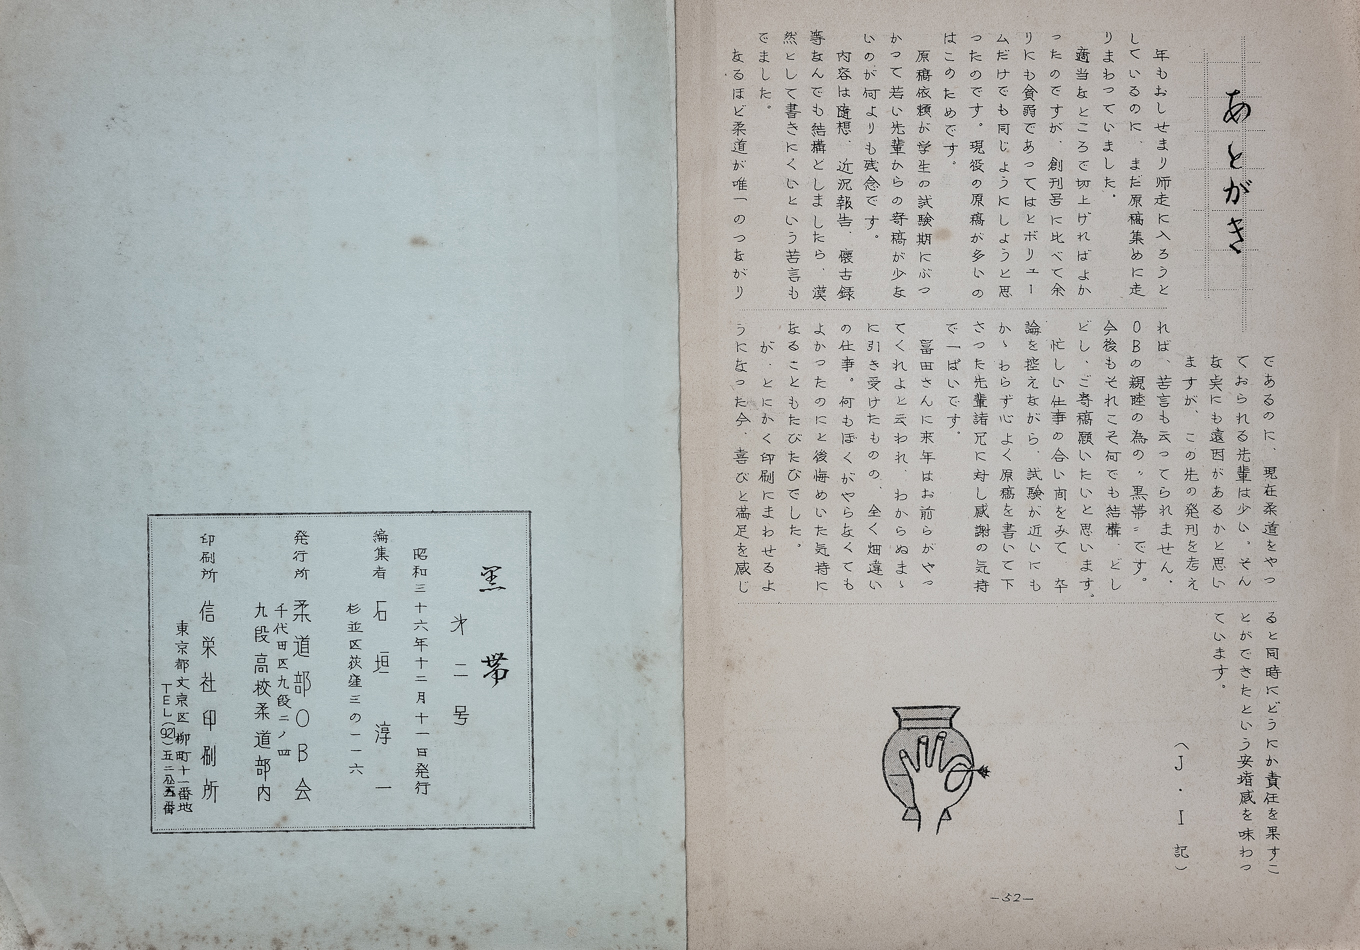 あとがき
年もおしせまり師走に入ろうと
しているのに、まだ原稿集めに走
りまわっていました。
適当なところで切上げればよか
ったのですが、創刊号に比べて余
りにも貧弱であってはとボリュー
ムだけでも同じようにしようと思
ったのです。現役の原稿が多いの
はこのためです。
原稿依頼が学生の試験期にぶつ
かって若い先輩からの寄稿が少な
いのが何よりも残念です。
内容は随想、近況報告、懐古録
等なんでも結構としましたら、漠
然として書きにくいという苦言も
でました。
なるほど柔道が唯一のつながり
であるのに、現在柔道をやっ
ておられる先輩は少い。そん
な点にも遠因があるかと思い
ますが、この先の発刊を考え
れば、苦言も云ってられません。
OBの親睦の為の〝黒帯〟です。
今後もそれこそ何でも結構、どし
どし、ご寄稿願いたいと思います。
忙しい仕事の合い間をみて、卒
論を控えながら、試験が近いにも
かゝわらず心よく原稿を書いて下
さった先輩諸兄に対し感謝の気持
で一ぱいです。
冨田さんに来年はお前らがやっ
てくれよと云われ、わからぬまゝ
に引き受けたものの、全く畑違い
の仕事。何もぼくがやらなくても
よかったのにと後悔めいた気持に
なることもたびたびでした。
が、とにかく印刷にまわせるよ
うになった今、喜びと満足を感じ
ると同時にどうにか責任を果すこ
とができたという安堵感を味わっ
ています。
(J・I 記)
—52—
黒帯
オ二号
昭和三十六年十二月十一日発行
編集者 石垣淳一
杉並区荻窪三の一一六
発行所 柔道部OB会
千代田区九段二ノ四
九段高校柔道部内
印刷所 信栄社印刷所
東京都文京区柳町十一番地
TEL(921)五二五番